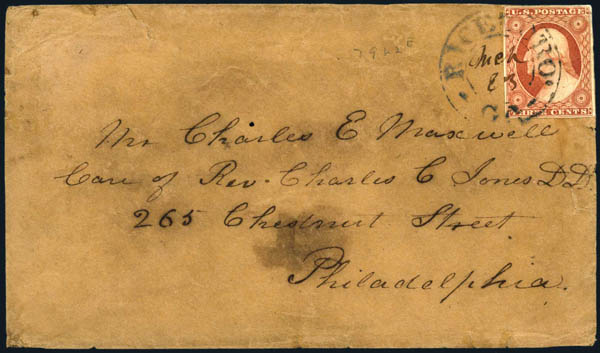 U.S. POSTAGE
THREE CENTS
RICEBORO.
GA.
23
Mr Charles E Maxwell
Care of Rev. Charles C Jones D.D.
265 Chestnut Street
Philadelphia.